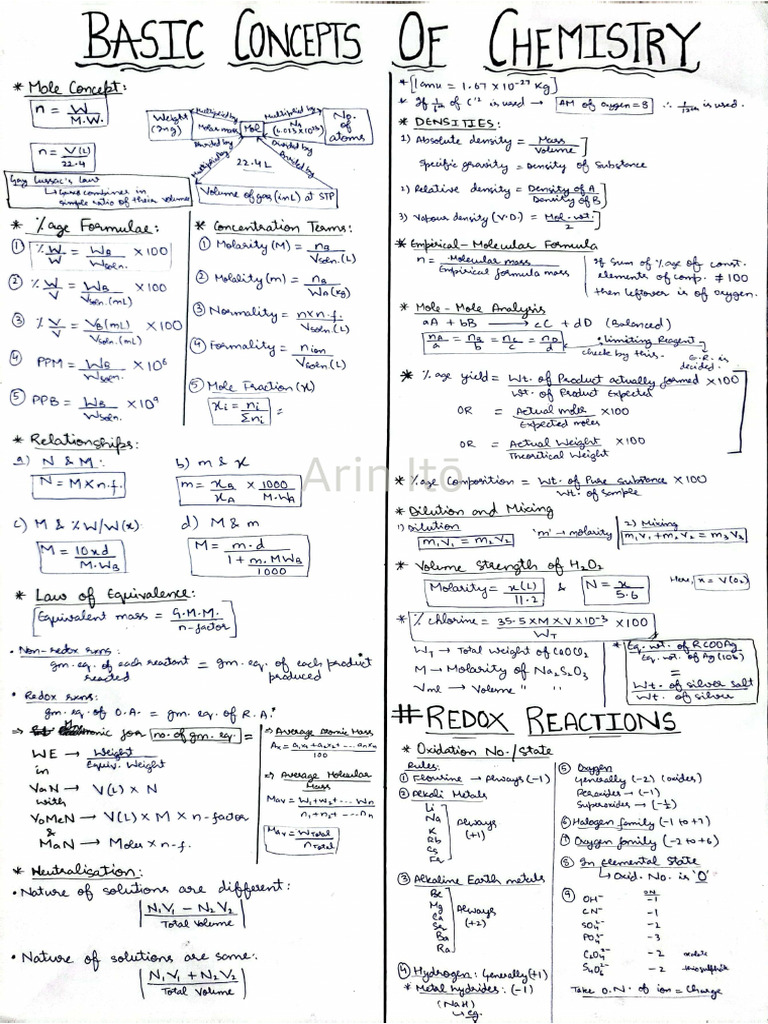 BASIC CONCEPTS OF CHEMISTRY
* Mole Concept:
n = W / M.W.
n = V(L) / 22.4
Gay Lussac's Law
↳ Gases combines in
simple ratio of their volume
Weight
(in g)
Multiplied by
Molar mass
Divided by
Mol
Multiplied by
NA
Divided by
No.
of
atoms
Multiplied by
22.4L
Divided by
Volume of gas (in L) at STP
* %age Formulae:
① % W/W = WB / Wsoln. × 100
② % W/V = WB / Vsoln.(mL) × 100
③ % V/V = VB(mL) / Vsoln.(mL) × 100
④ PPM = WB / Wsoln. × 10⁶
⑤ PPB = WB / Wsoln. × 10⁹
* Concentration Terms:
① Molarity (M) = nB / Vsoln.(L)
② Molality (m) = nB / WA(kg)
③ Normality = n×n.f. / Vsoln.(L)
④ Formality = nion / Vsoln.(L)
⑤ Mole Fraction (x)
xi = ni / Σni =
* Relationships:
a) N & M:
N = M × n.f.
b) m & x
m = xB / xA × 1000 / M.WA
c) M & % W/W(x):
M = 10xd / M.WB
d) M & m
M = m.d / 1 + m.MWB / 1000
* Law of Equivalence:
Equivalent mass = G.M.M. / n-factor
• Non-redox rxns:
gm. eq. of each reactant reacted = gm. eq. of each product produced
• Redox rxns:
gm. eq. of O.A. = gm. eq. of R.A.
⇒ Mnemonic for no. of gm. eq. =
WE → Weight / Equiv. Weight
in
VaN → V(L) × N
with
VoMeN → V(L) × M × n-factor
&
MaN → Moles × n-f.
⇒ Average Atomic Mass
Ax = a₁x₁ + a₂x₂ + ... anxn / 100
⇒ Average Molecular
Mass
Mav = W₁ + W₂ + ... Wn / n₁ + n₂ + ... nn
Mav = WTotal / nTotal
* Neutralisation:
• Nature of solutions are different:
N₁V₁ − N₂V₂ / Total Volume
• Nature of solutions are same:
N₁V₁ + N₂V₂ / Total Volume
* 1amu = 1.67 × 10⁻²⁷ Kg
* If 1/6th of C¹² is used → AM of oxygen = 8 ∴ 1/12th is used.
* DENSITIES:
1) Absolute density = Mass / Volume
Specific gravity = Density of Substance
2) Relative density = Density of A / Density of B
3) Vapour density (V.D.) = Mol. wt. / 2
* Empirical-Molecular Formula
n = Molecular mass / Empirical formula mass
If Sum of %age of const.
elements of comp. ≠ 100
then leftover is of oxygen.
* Mole-Mole Analysis
aA + bB → cC + dD (Balanced)
nA/a = nB/b = nC/c = nD/d
• limiting Reagent
check by this.
decided.
* %age yield = Wt. of Product actually formed / Wt. of Product Expected × 100
OR = Actual moles / Expected moles × 100
OR = Actual Weight / Theoritical Weight × 100
Arin Itō
* %age Composition = Wt. of Pure Substance / Wt. of Sample × 100
* Dilution and Mixing
1) Dilution
m₁V₁ = m₂V₂
'm' → molarity
2) Mixing
m₁V₁ + m₂V₂ = m₃V₃
* Volume Strength of H₂O₂
Molarity = x(L) / 11.2 & N = x / 5.6
Here, x = V(O₂)
* % chlorine = 35.5 × M × V × 10⁻³ / WT × 100
WT → Total Weight of CaOCl₂
M → Molarity of Na₂S₂O₃
Vml → Volume " "
* Eq. wt. of RCOOAg / Eq. wt. of Ag (108)
=
Wt. of silver salt / Wt. of silver
# REDOX REACTIONS
* Oxidation No./State
Rules:
① Flourine → Always (-1)
② Alkali Metals
Li
Na
K
Rb
Cs
Fr
Always
(+1)
③ Alkaline Earth metals
Be
Mg
Ca
Sr
Ba
Ra
Always
(+2)
④ Hydrogen: Generally (+1)
* Metal hydrides: (-1)
(NaH)
↳ eg.
⑤ Oxygen
Generally (-2) (oxides)
Peroxides → (-1)
Superoxides → (-½)
⑥ Halogen family (-1 to +7)
⑦ Oxygen family (-2 to +6)
⑧ In elemental State
↳ Oxid. No. is '0'
⑨ ON
OH⁻ -1
CN⁻ -1
SO₄²⁻ -2
PO₄³⁻ -3
C₂O₄²⁻ -2 oxalate
S₄O₆²⁻ -2
Take O.N. of ion = Charge